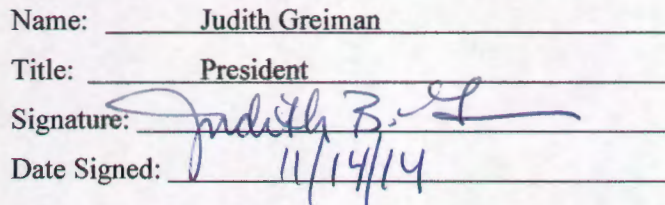 Name: Judith Greiman
Title: President
Signature: Judith B. G
Date Signed: 11/14/14